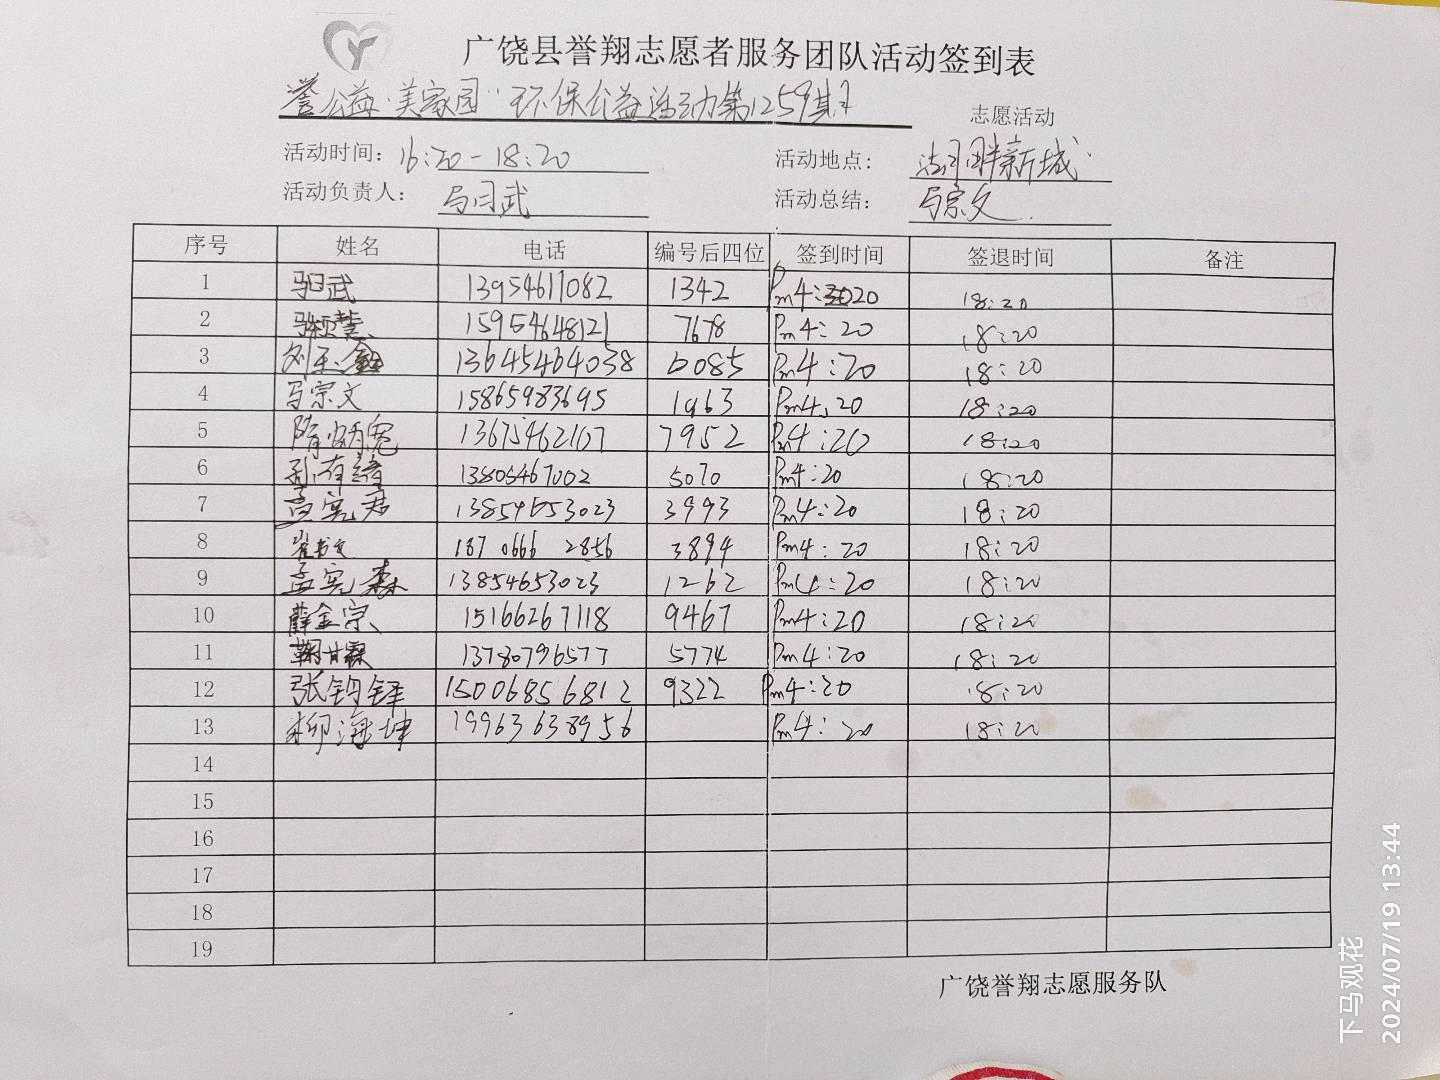 广饶县誉翔志愿者服务团队活动签到表
誉公益·美家园"环保公益活动第1259期 志愿活动
活动时间：16:20-18:20 活动地点：湖畔新城
活动负责人：马日武 活动总结：马宗文
序号 姓名 电话 编号后四位 签到时间 签退时间 备注
1 马日武 13954611082 1342 Pm4:20 18:20
2 15954648121 7678 Pm4:20 18:20
3 刘玉鑫 13645464038 6085 Pm4:20 18:20
4 马宗文 15865983695 1963 Pm4:20 18:20
5 隋炳宽 13675462107 7952 Pm4:20 18:20
6 孙有绪 13805467002 5070 Pm4:20 18:20
7 孟宪君 13854653023 3993 Pm4:20 18:20
8 崔书文 187 0666 2856 3894 Pm4:20 18:20
9 孟宪森 13854653023 1262 Pm4:20 18:20
10 薛金宗 15166267118 9467 Pm4:20 18:20
11 鞠甘霖 13780796577 5774 Pm4:20 18:20
12 张钧铎 15006856812 9322 Pm4:20 18:20
13 柳海坤 19963638956 Pm4:20 18:20
14
15
16
17
18
19
广饶誉翔志愿服务队
下马观花
2024/07/19 13:44